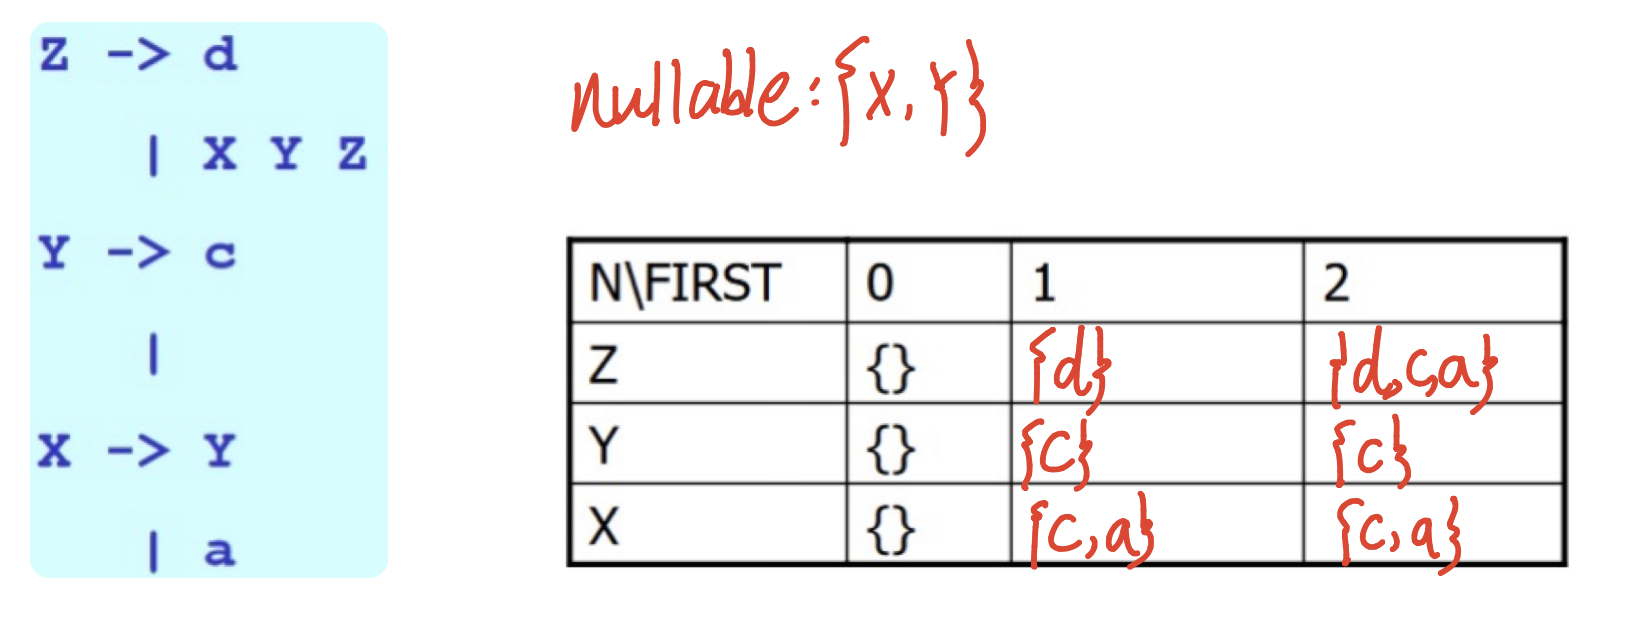 Z -> d
| X Y Z
Y -> c
|
X -> Y
| a
nullable: {X, Y}
N\FIRST 0 1 2
Z {} {d} {d,c,a}
Y {} {c} {c}
X {} {c,a} {c,a}